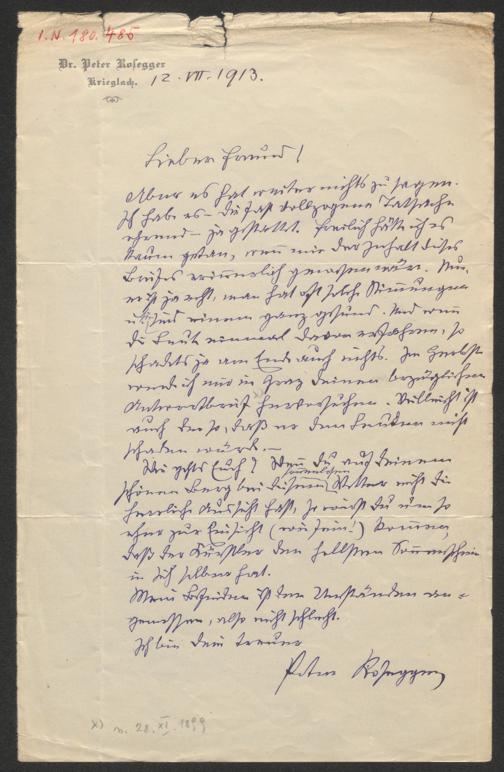 I.N. 180.485
Dr. Peter Rosegger
Krieglach.
12. VII. 1913.
Lieber Freund!
Aber es hat weiter nichts zu sagen.
Ich habe es – die fast vollzogene Tatsache
ehrend – ja gestattet. Freilich hätte ich es
kaum getan, wenn mir der Inhalt dieses
Briefes erinnerlich gewesen wäre. Nun,
es ist ja echt, man hat oft solche Stimmungen
u. sie sind einem ganz gesund. Und wenn
die Leute einmal davon erfahren, so
schadets ja am Ende auch nichts. Im Herbste
werde ich mir in Graz deinen bezüglichen
Antwortbrief hervorsuchen. Vielleicht ist
auch der so, daß er den Leuten nicht
schaden würde. –
Wie gehts Euch? Wenn Du auf Deinem
schönen Berg bei diesem Wetter nicht die
herrliche Aussicht hast, so wirst Du um so
eher zur Einsicht (wie fein!) kommen,
daß der Künstler den hellsten Sonnenschein
in sich selber hat.
Mein Befinden ist den Umständen an-
gemessen, also nicht schlecht.
Ich bin dein treuer
Peter Rosegger
x) v. 28. XI. 1899